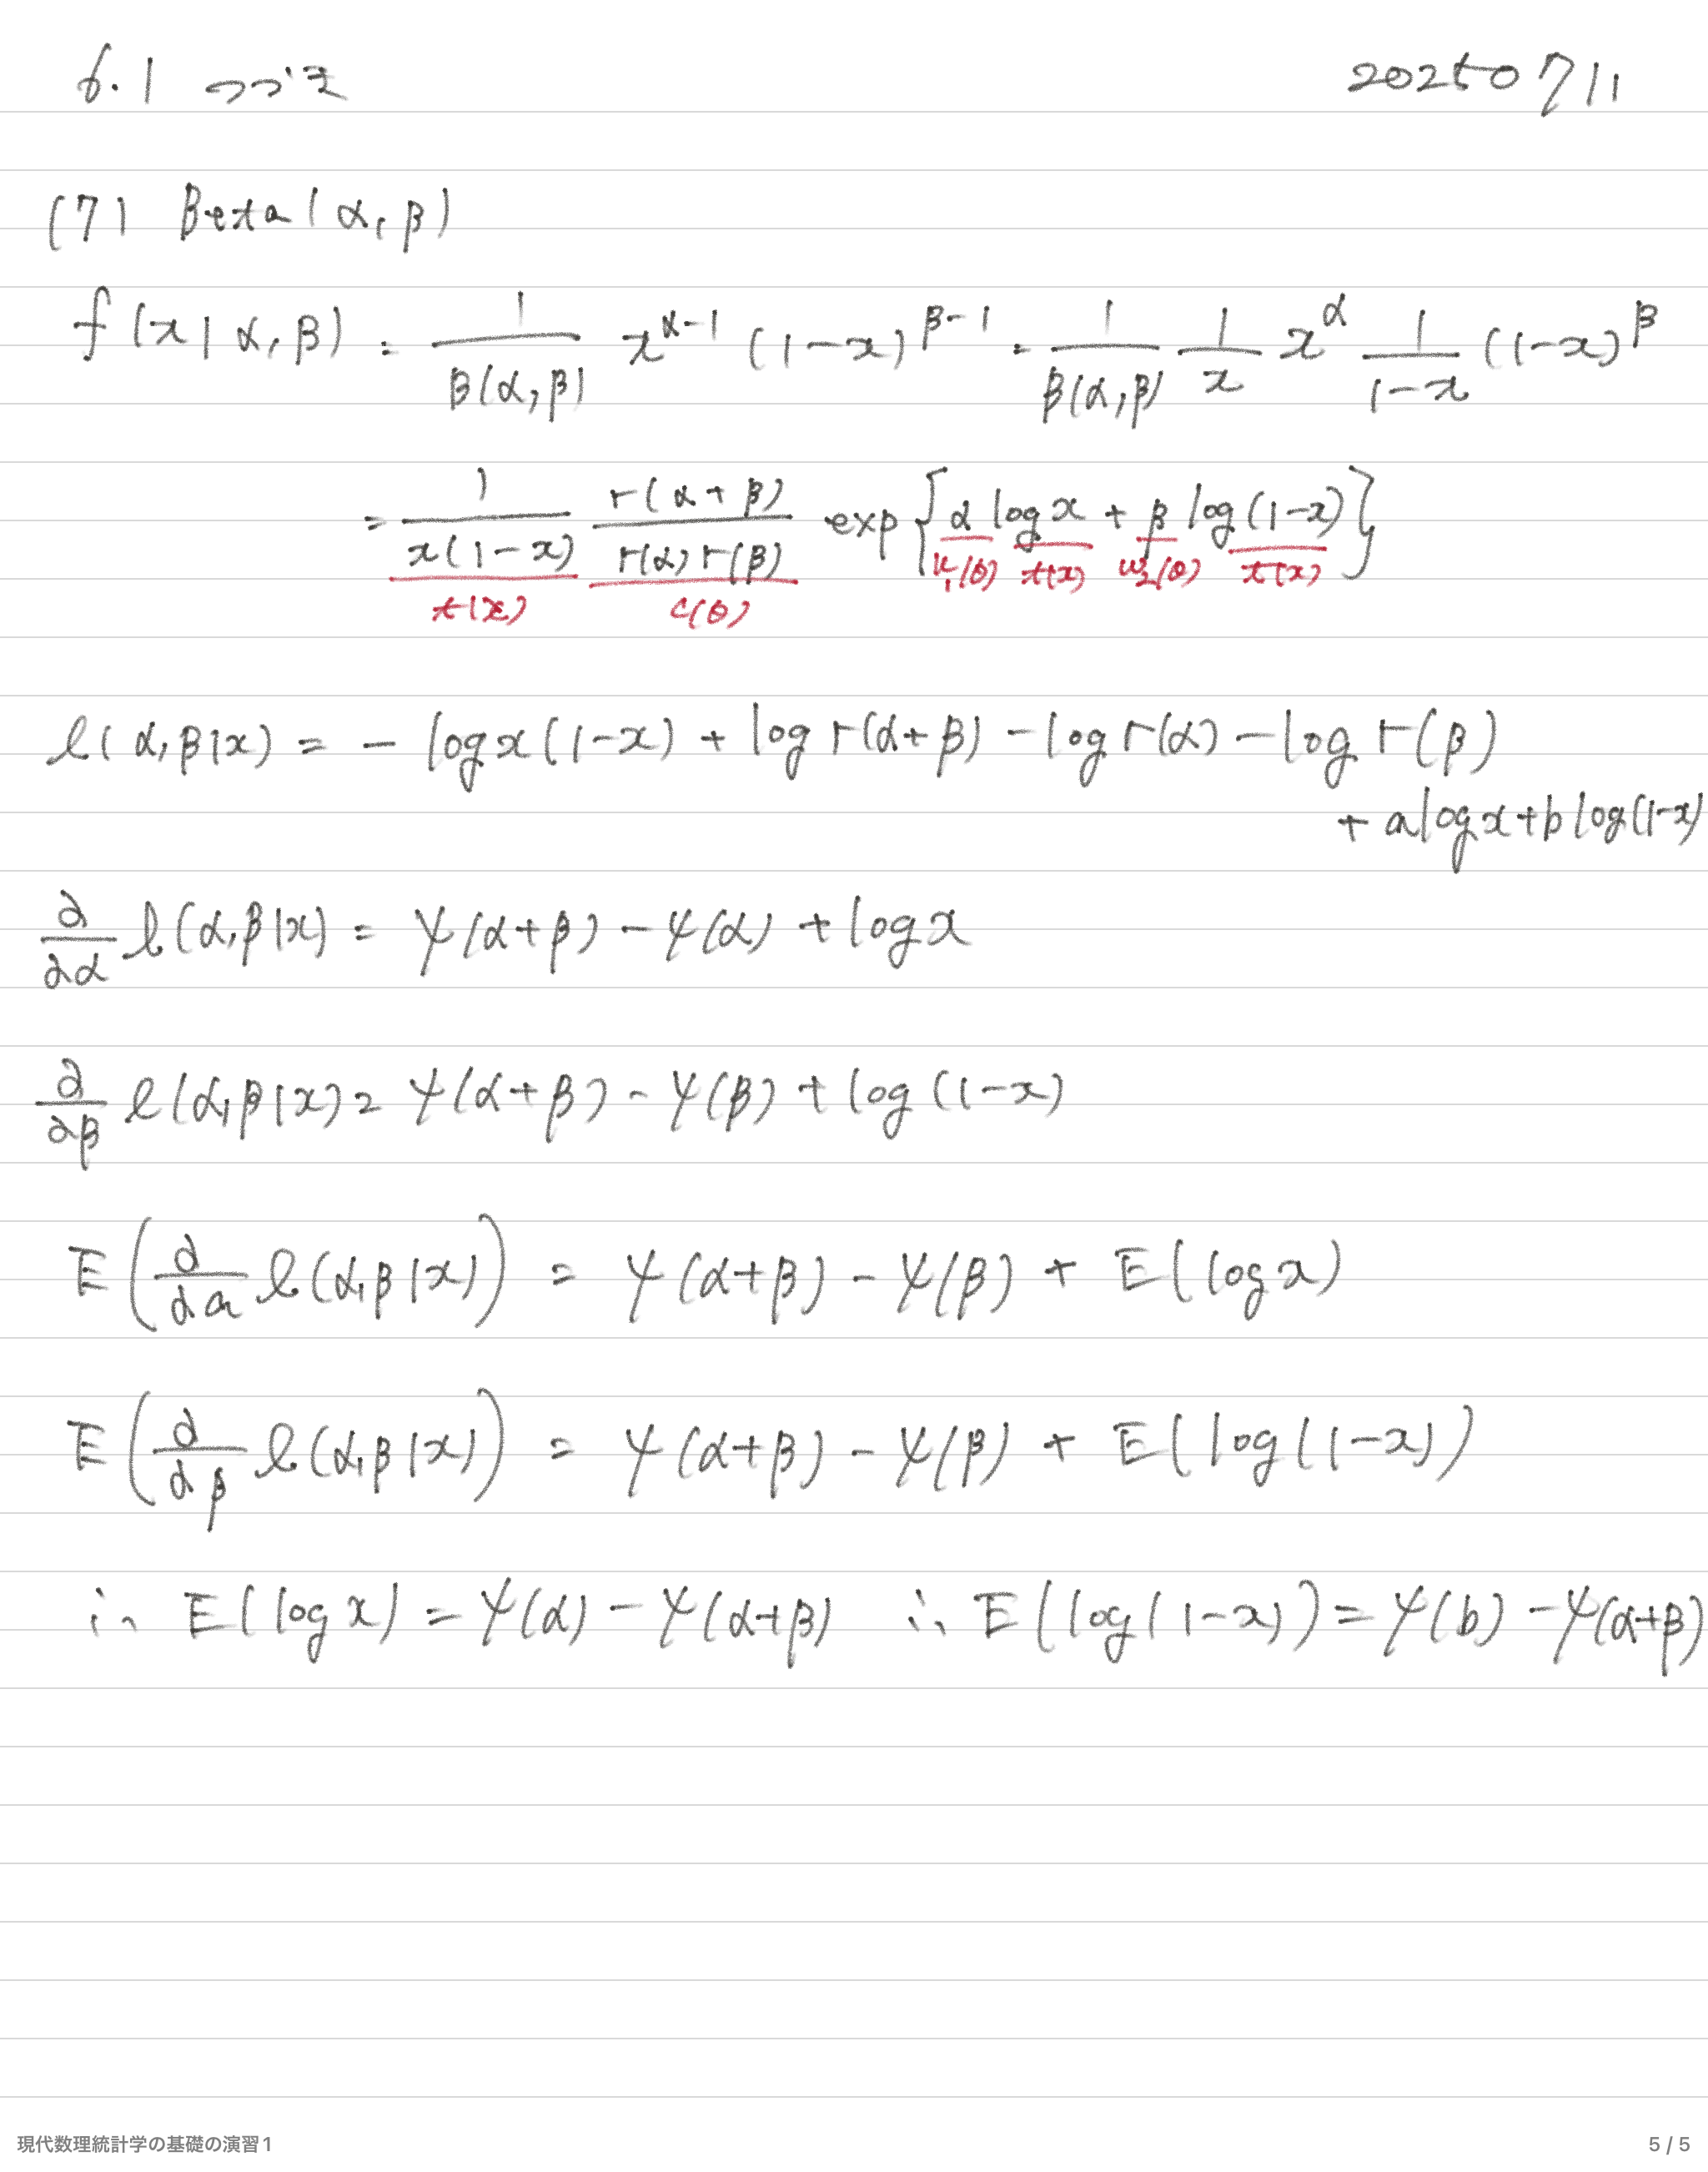 6.1 つづき 20250711
(7) Beta(α,β)
f(x|α,β) = 1/B(α,β) x^{α-1} (1-x)^{β-1} = 1/B(α,β) 1/x x^α 1/(1-x) (1-x)^β
= 1/(x(1-x)) Γ(α+β)/(Γ(α)Γ(β)) exp{α log x + β log(1-x)}
t(x) c(θ) w₁(θ) t(x) w₂(θ) t(x)
ℓ(α,β|x) = - log x(1-x) + log Γ(α+β) - log Γ(α) - log Γ(β)
+ a log x + b log(1-x)
∂/∂α ℓ(α,β|x) = ψ(α+β) - ψ(α) + log x
∂/∂β ℓ(α,β|x) = ψ(α+β) - ψ(β) + log(1-x)
E(∂/∂a ℓ(α,β|x)) = ψ(α+β) - ψ(β) + E(log x)
E(∂/∂β ℓ(α,β|x)) = ψ(α+β) - ψ(β) + E(log(1-x))
∴ E(log x) = ψ(α) - ψ(α+β) ∴ E(log(1-x)) = ψ(b) - ψ(α+β)
現代数理統計学の基礎の演習1 5 / 5